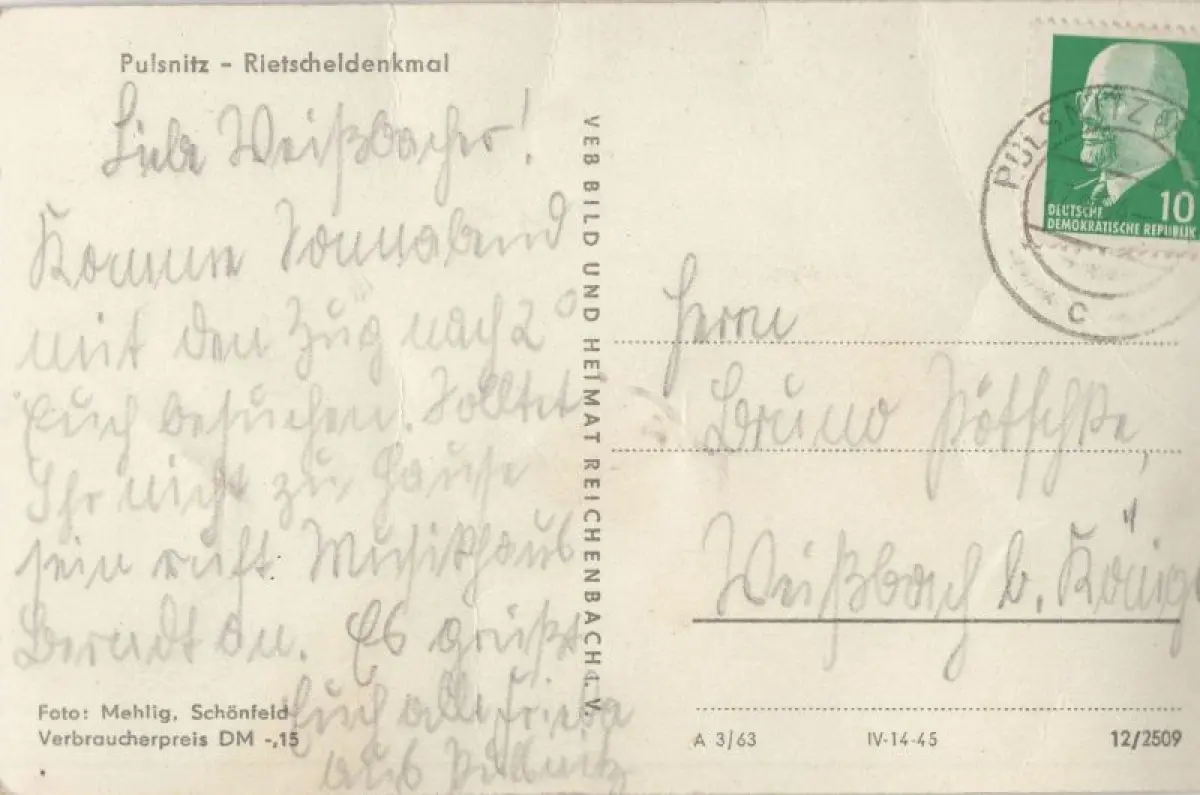 Pulsnitz - Rietscheldenkmal
Liebe Weißbacher!
Komme Sonnabend
mit den Zug nach 2°
Euch besuchen. Solltet
Ihr nicht zu Hause
sein ruft Musikhaus
Berndt an. Es grüßt
Euch alle Frieda
aus Pulsnitz
Foto: Mehlig, Schönfeld
Verbraucherpreis DM -,15
VEB BILD UND HEIMAT REICHENBACH i. V.
PULSNITZ
c
10
DEUTSCHE
DEMOKRATISCHE REPUBLIK
Herrn
Bruno Pötschke,
Weißbach b. König
A 3/63 IV-14-45 12/2509